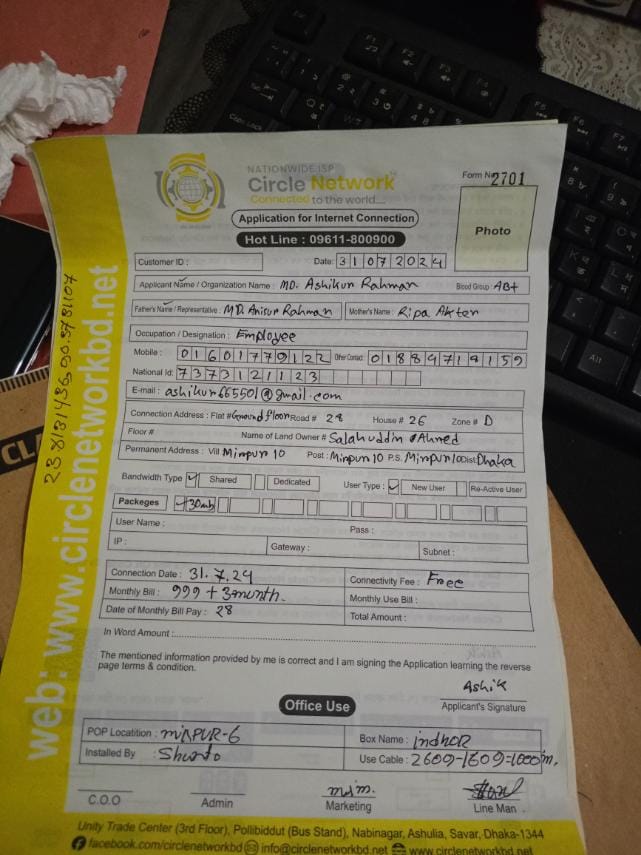 NATIONWIDE ISP
Circle Network
Connected to the world....
Form No 2701
Application for Internet Connection
Hot Line : 09611-800900
Photo
Customer ID :
Date: 31072024
Applicant Name / Organization Name : MD. Ashikur Rahman Blood Group: AB+
Father's Name / Representative : MD. Anisur Rahman Mother's Name : Ripa Akter
Occupation / Designation : Employee
Mobile : 01601779122 Other Contact: 01889714159
National Id: 7373121123
E-mail : ashikur66550l@gmail.com
Connection Address : Flat # Ground floor Road # 28 House # 26 Zone # D
Floor # Name of Land Owner # Salahuddin Ahmed
Permanent Address : Vill Mirpur 10 Post : Mirpur 10 P.S. Mirpur 10 Dist Dhaka
Bandwidth Type ✓ Shared Dedicated User Type : ✓ New User Re-Active User
Packeges ✓ 30mb
User Name : Pass :
IP : Gateway : Subnet :
Connection Date : 31.7.24 Connectivity Fee : Free
Monthly Bill : 999 + 3month. Monthly Use Bill :
Date of Monthly Bill Pay : 28 Total Amount :
In Word Amount :
The mentioned information provided by me is correct and I am signing the Application learning the reverse
page terms & condition.
Ashik
Applicant's Signature
Office Use
POP Locatition : MIRPUR-6 Box Name : indhoR
Installed By Shanto Use Cable : 2609-1609=1000m.
C.O.O Admin Marketing Line Man
Unity Trade Center (3rd Floor), Pollibiddut (Bus Stand), Nabinagar, Ashulia, Savar, Dhaka-1344
facebook.com/circlenetworkbd info@circlenetworkbd.net www.circlenetworkbd.net
web: www.circlenetworkbd.net